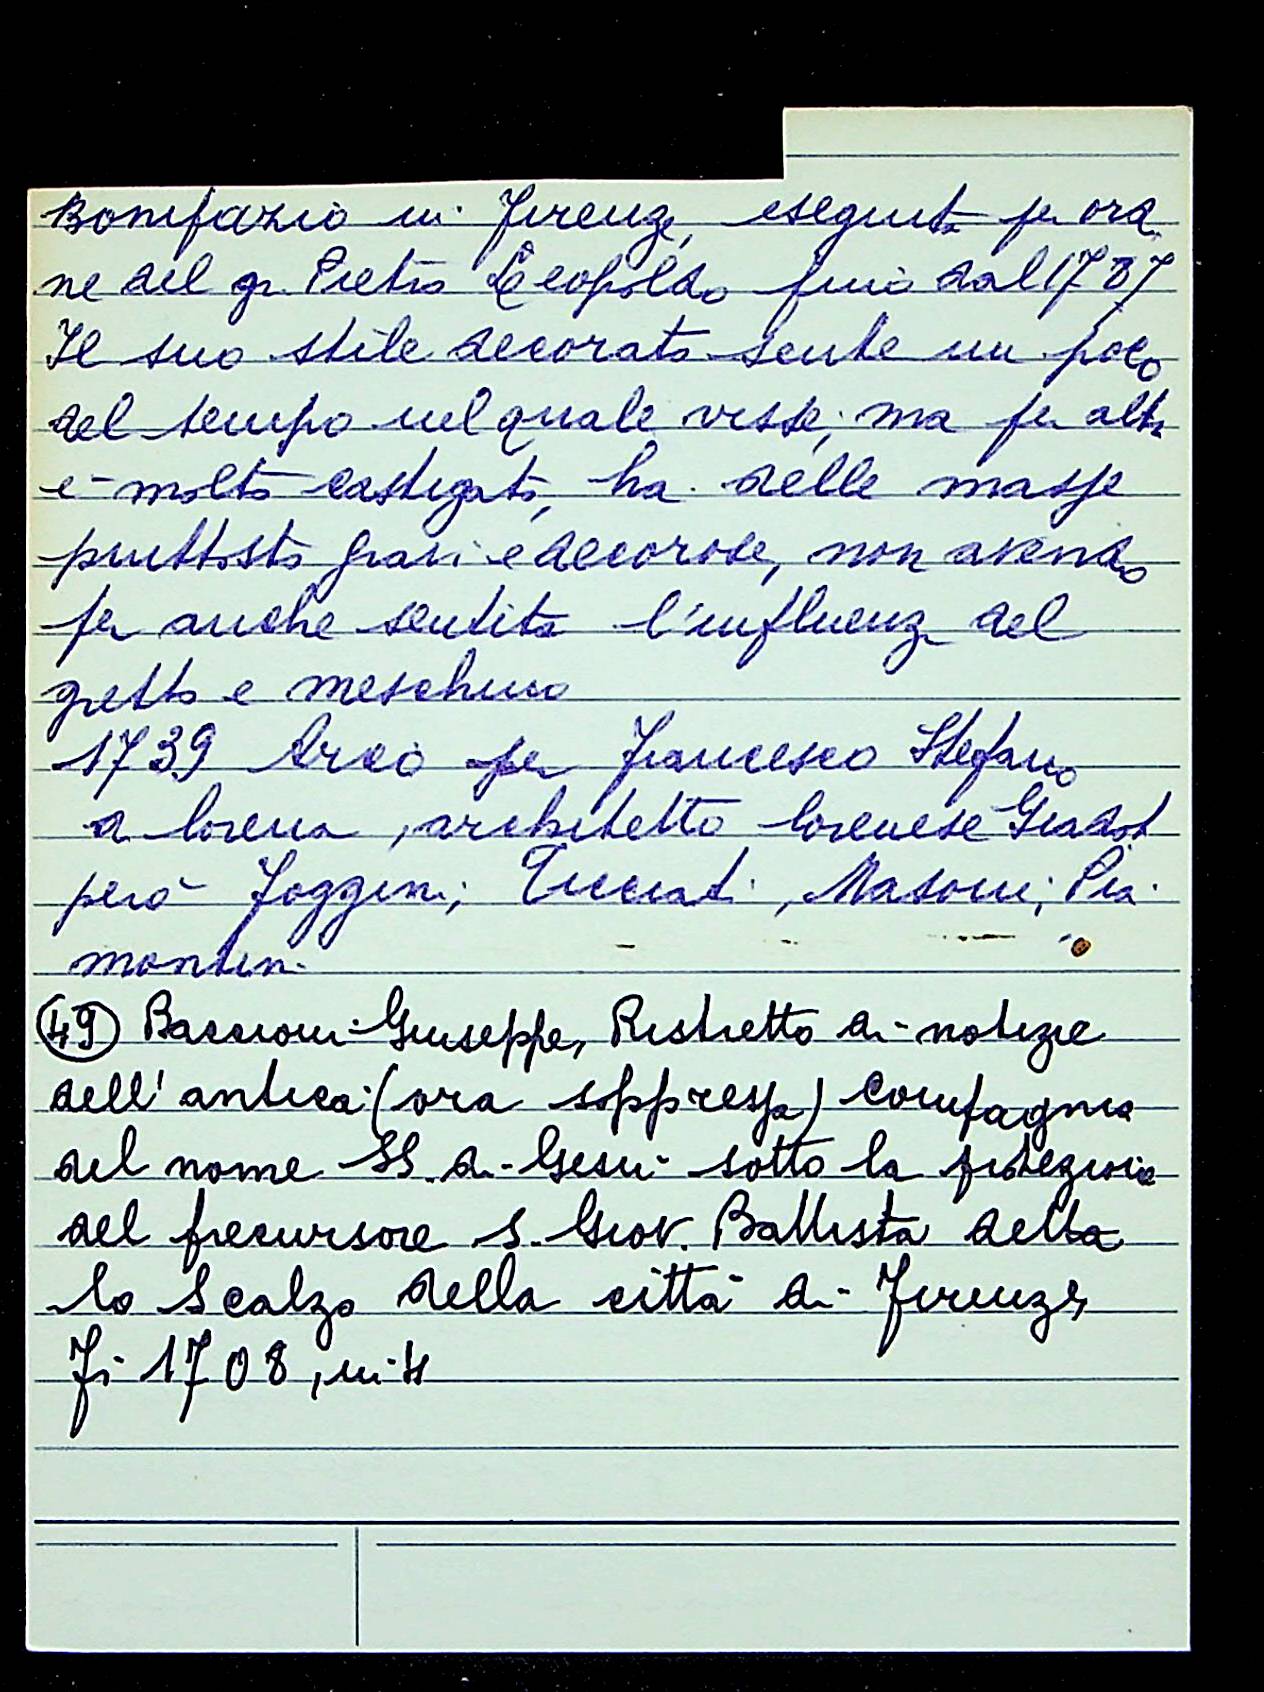 Bonifazio in Firenze, eseguita per ordi
ne del gr. Pietro Leopoldo fino dal 1787
Il suo stile decorato sente un poco
del tempo nel quale visse; ma per altro
è molto castigato, ha delle masse
piuttosto gravi e decorose, non avendo
per anche sentita l'influenza del
gretto e meschino
1739 Arco per Francesco Stefano
di Lorena, architetto lorenese Giadot
però Foggini; Ticciati, Masoni; Pia
montini
(49) Baccioni Giuseppe, Ristretto di notizie
dell'antica (ora soppressa) Compagnia
del nome SS. di Gesù sotto la protezione
del precursore S. Giov. Battista detta
lo Scalzo della città di Firenze,
Fi 1708, in